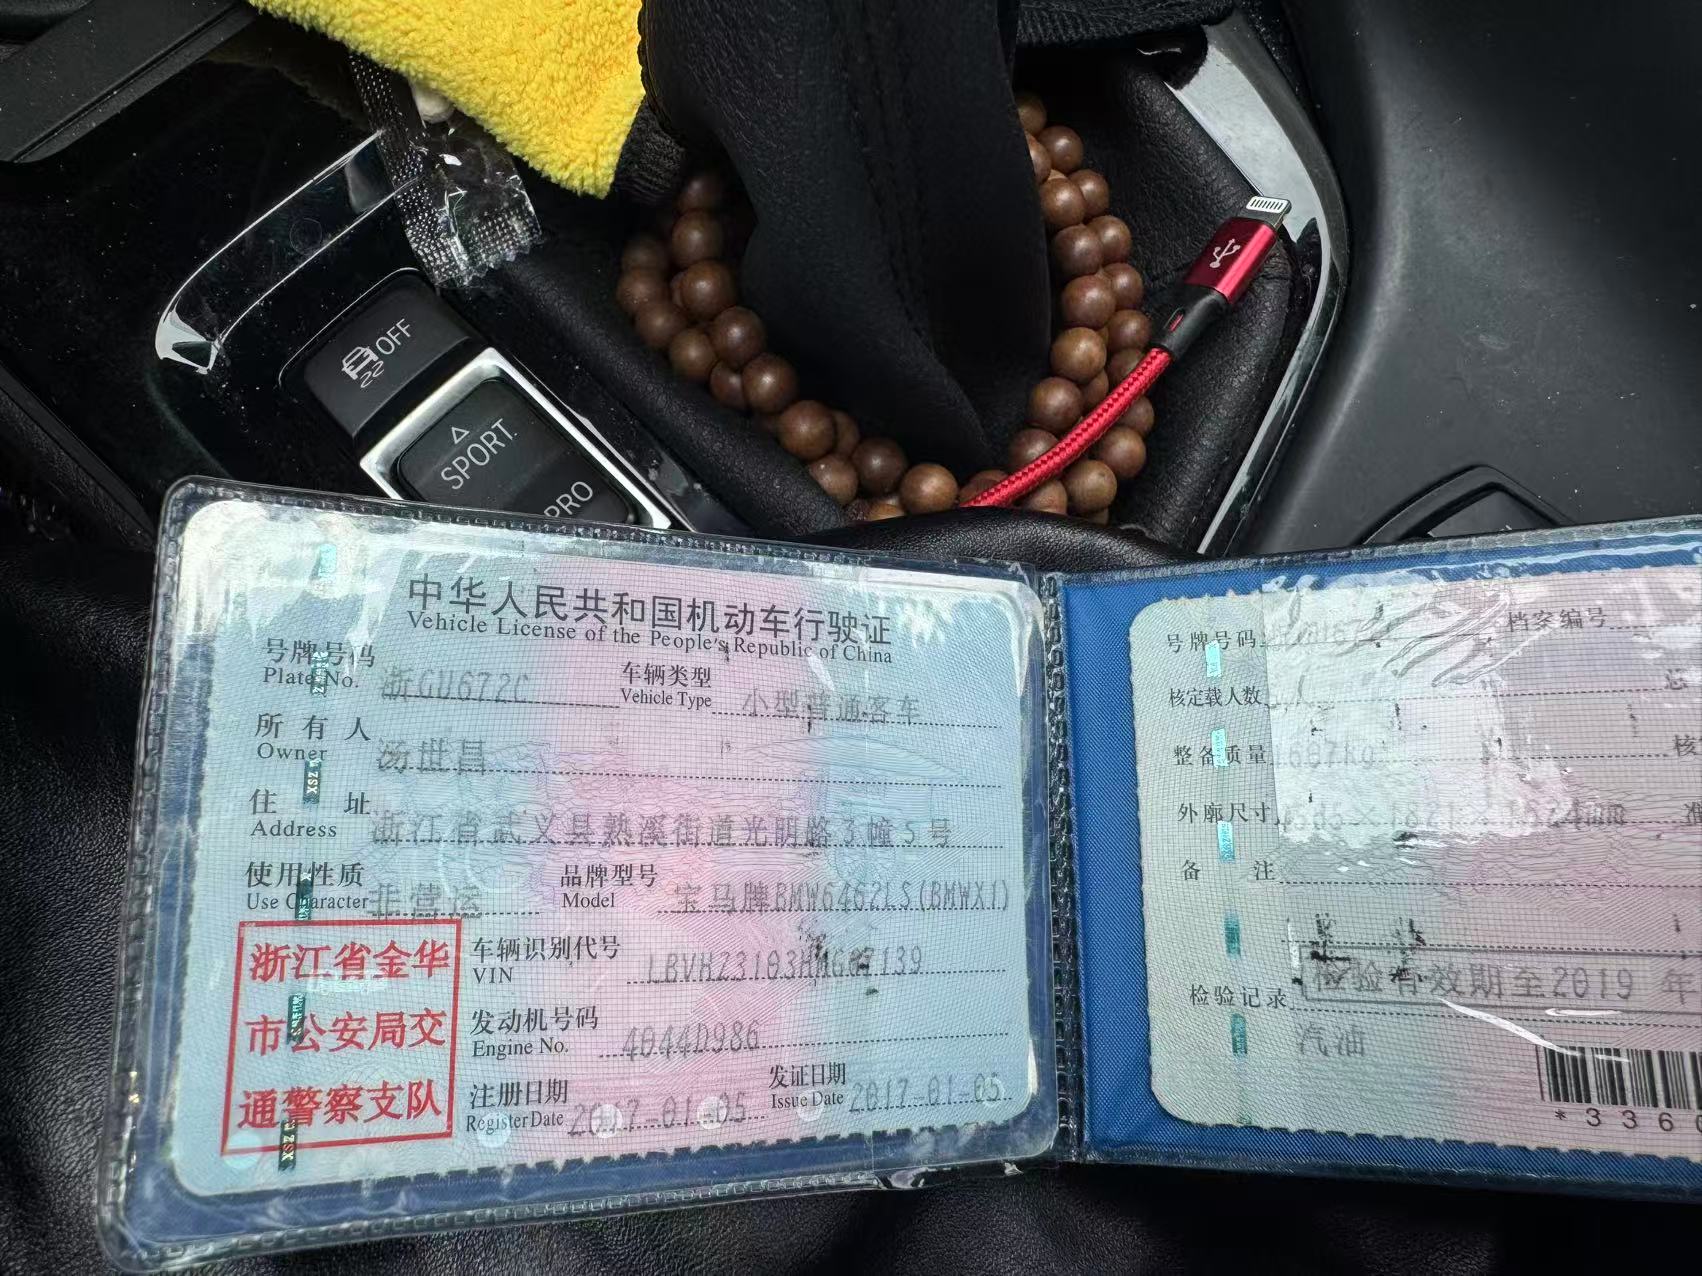 OFF
SPORT
PRO
中华人民共和国机动车行驶证
Vehicle License of the People's Republic of China
号牌号码
Plate No. 浙GU672C
车辆类型
Vehicle Type 小型普通客车
所有人
Owner 汤世昌
住址
Address 浙江省武义县熟溪街道光明路3幢5号
使用性质
Use Character 非营运
品牌型号
Model 宝马牌BMW6462LS(BMWX1)
浙江省金华
市公安局交
通警察支队
车辆识别代号
VIN
发动机号码
Engine No. 4044D986
注册日期
Register Date 2017-01-05
发证日期
Issue Date 2017-01-05
号牌号码
档案编号
核定载人数
整备质量
外廓尺寸
备注
检验记录
检验有效期至2019年
汽油
*336